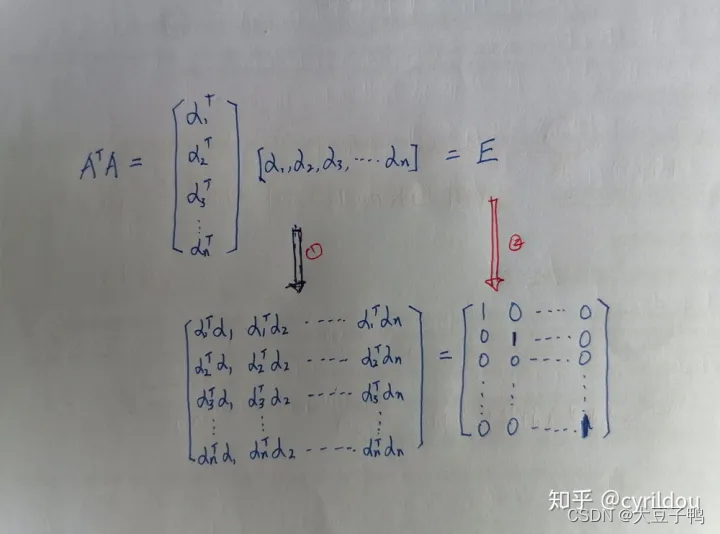 AᵀA = [α₁ᵀ α₂ᵀ α₃ᵀ ⋮ αₙᵀ] [α₁,α₂,α₃,····αₙ] = E
① ②
[α₁ᵀα₁ α₁ᵀα₂ ----- α₁ᵀαₙ] = [1 0 ---- 0]
α₂ᵀα₁ α₂ᵀα₂ ----- α₂ᵀαₙ 0 1 ---- 0
α₃ᵀα₁ α₃ᵀα₂ ----- α₃ᵀαₙ 0 0 ---- 0
⋮ ⋮ ⋮ ⋮ ⋮ ⋮
αₙᵀα₁ αₙᵀα₂ ----- αₙᵀαₙ 0 0 ----- 1
知乎 @cyrildou
CSDN @大豆子鸭